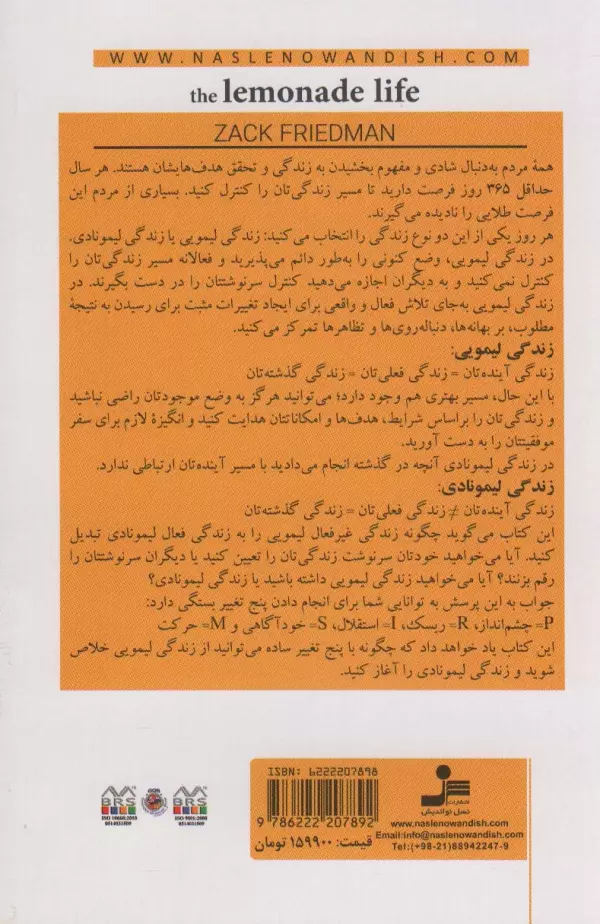 WWW.NASLENOWANDISH.COM
the lemonade life
ZACK FRIEDMAN
همهٔ مردم به‌دنبال شادی و مفهوم بخشیدن به زندگی و تحقق هدف‌هایشان هستند. هر سال
حداقل ۳۶۵ روز فرصت دارید تا مسیر زندگی‌تان را کنترل کنید. بسیاری از مردم این
فرصت طلایی را نادیده می‌گیرند.
هر روز یکی از این دو نوع زندگی را انتخاب می‌کنید: زندگی لیمویی یا زندگی لیمونادی.
در زندگی لیمویی، وضع کنونی را به‌طور دائم می‌پذیرید و فعالانه مسیر زندگی‌تان را
کنترل نمی‌کنید و به دیگران اجازه می‌دهید کنترل سرنوشتتان را در دست بگیرند. در
زندگی لیمویی به‌جای تلاش فعال و واقعی برای ایجاد تغییرات مثبت برای رسیدن به نتیجهٔ
مطلوب، بر بهانه‌ها، دنباله‌روی‌ها و تظاهرها تمرکز می‌کنید.
زندگی لیمویی:
زندگی آینده‌تان = زندگی فعلی‌تان = زندگی گذشته‌تان
با این حال، مسیر بهتری هم وجود دارد؛ می‌توانید هرگز به وضع موجودتان راضی نباشید
و زندگی‌تان را براساس شرایط، هدف‌ها و امکاناتتان هدایت کنید و انگیزهٔ لازم برای سفر
موفقیتتان را به دست آورید.
در زندگی لیمونادی آنچه در گذشته انجام می‌دادید با مسیر آینده‌تان ارتباطی ندارد.
زندگی لیمونادی:
زندگی آینده‌تان ≠ زندگی فعلی‌تان = زندگی گذشته‌تان
این کتاب می‌گوید چگونه زندگی غیرفعال لیمویی را به زندگی فعال لیمونادی تبدیل
کنید. آیا می‌خواهید خودتان سرنوشت زندگی‌تان را تعیین کنید یا دیگران سرنوشتتان را
رقم بزنند؟ آیا می‌خواهید زندگی لیمویی داشته باشید یا زندگی لیمونادی؟
جواب به این پرسش به توانایی شما برای انجام دادن پنج تغییر بستگی دارد:
P= چشم‌انداز، R= ریسک، I= استقلال، S= خودآگاهی و M= حرکت
این کتاب یاد خواهد داد که چگونه با پنج تغییر ساده می‌توانید از زندگی لیمویی خلاص
شوید و زندگی لیمونادی را آغاز کنید.
ISBN: 6222207898
9 786222 207892
قیمت: ۱۵۹۹۰۰ تومان
انتشارات
نسل نواندیش
www.naslenowandish.com
Email:info@naslenowandish.com
Tel:(+98-21)88942247-9
BRS
BRS